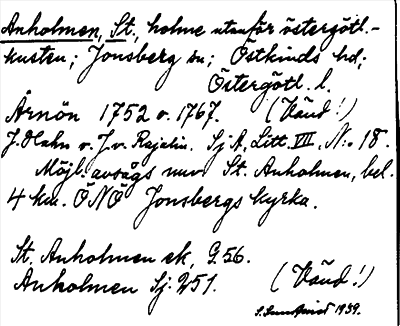 Anholmen, St., holme utanför östergötl.-
kusten; Jonsberg sn; Östkinds hd;
Östergötl. l.
Ärnön 1752 o. 1767. (Vänd!)
J. Hahn o. J. v. Rajalin. Sj A, Litt. VIII, N:o 18.
Möjl. avsågs nuv. St. Anholmen, bel.
4 km. ÖNÖ Jonsbergs kyrka.
St. Anholmen ek, G. 56.
Anholmen Sj. 251. (Vänd!)
1939.